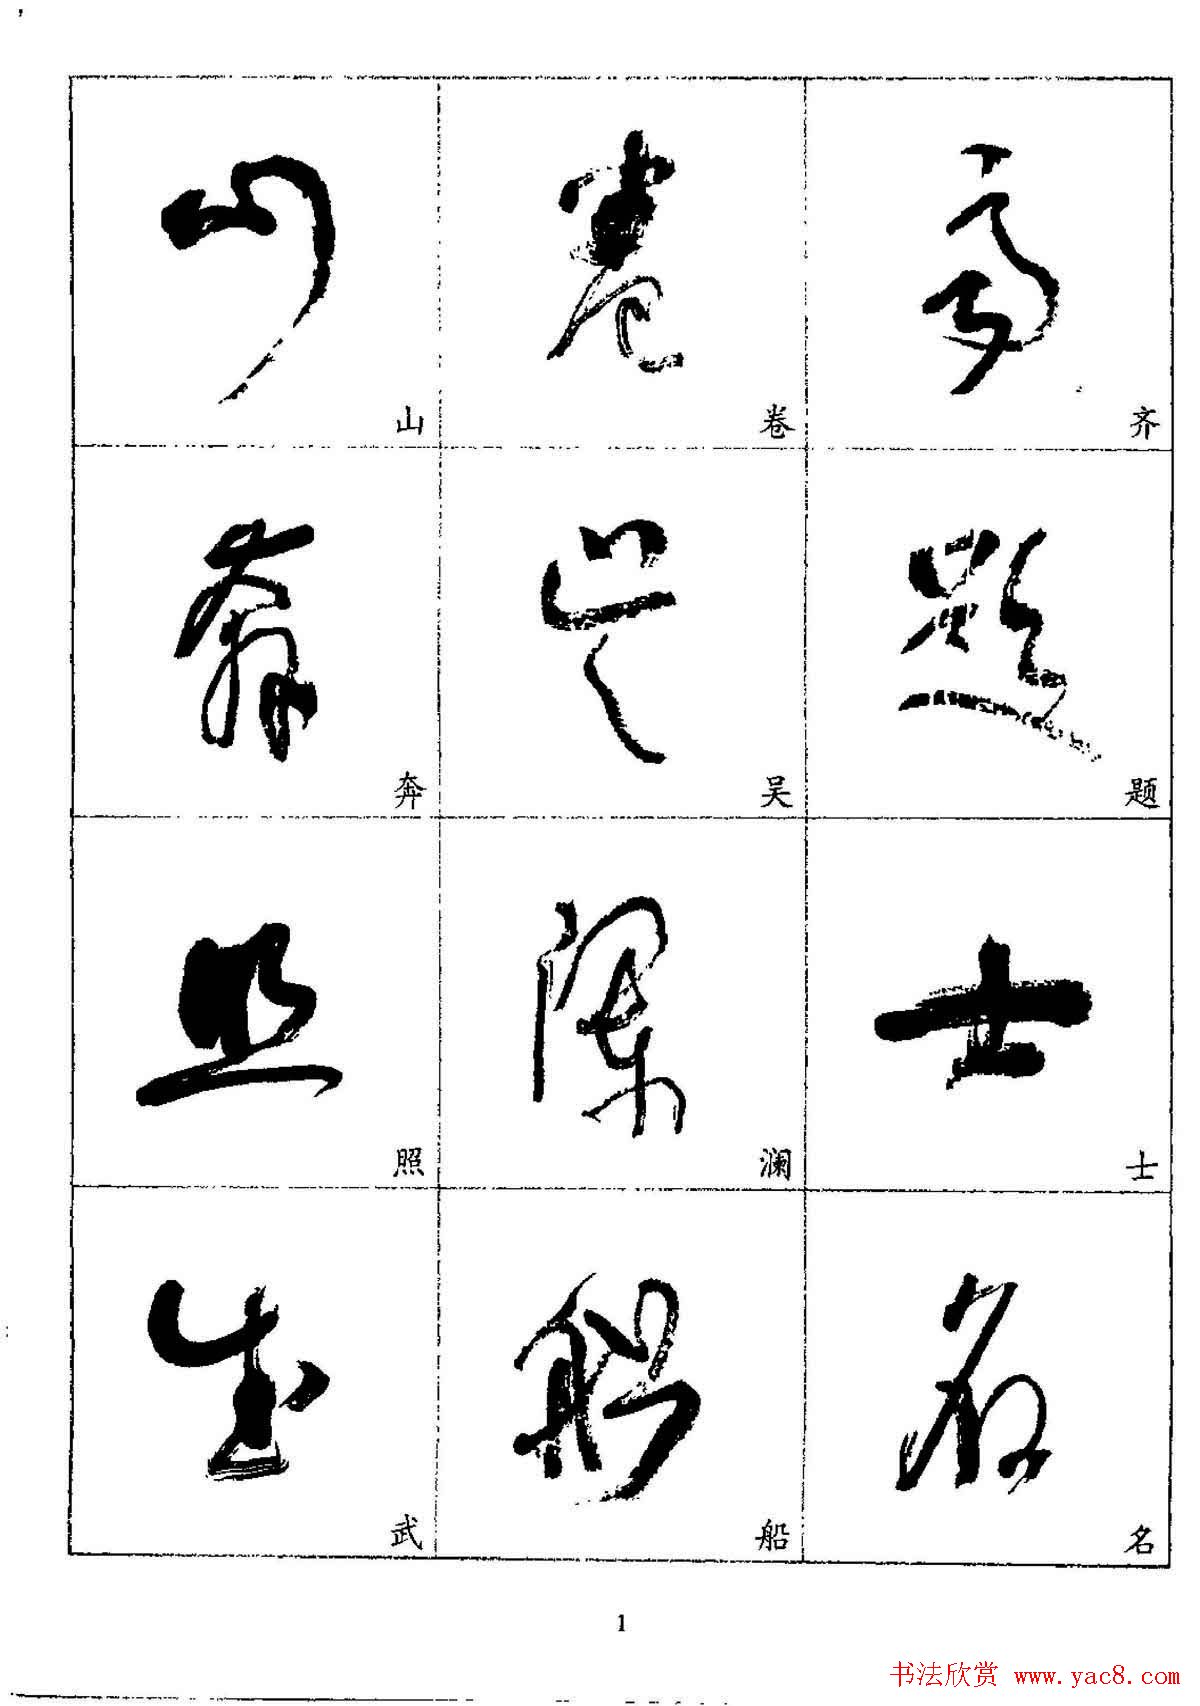 山 卷 齐
奔 吴 题
照 澜 士
武 船 名
1
书法欣赏 www.yac8.com